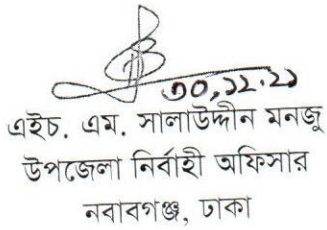 ৩০.১২.২১
এইচ. এম. সালাউদ্দীন মনজু
উপজেলা নির্বাহী অফিসার
নবাবগঞ্জ, ঢাকা